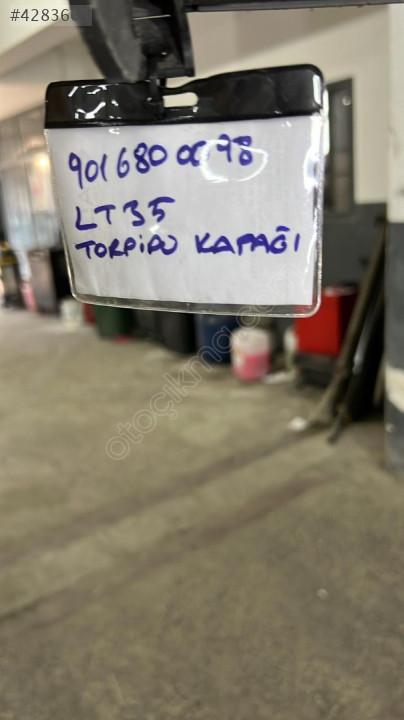 #42836
901680 0698
LT35
TORPİDO KAPAĞI
otoçıkma.com